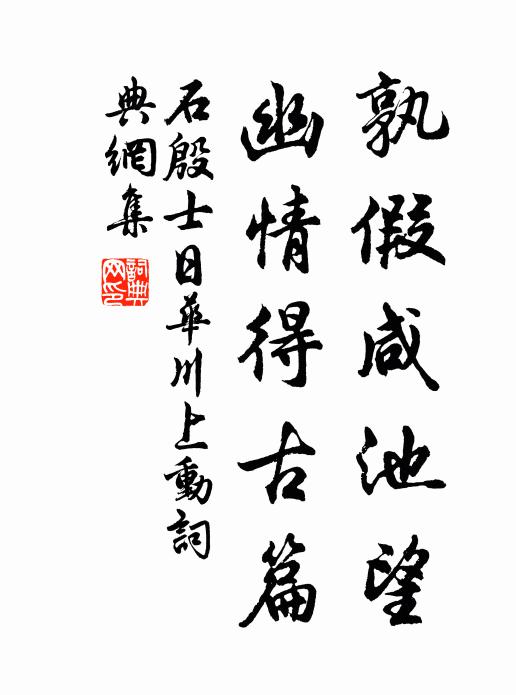 孰假咸池望
幽情得古篇
石殷士日華川上動詞
典網集
詞典
网印